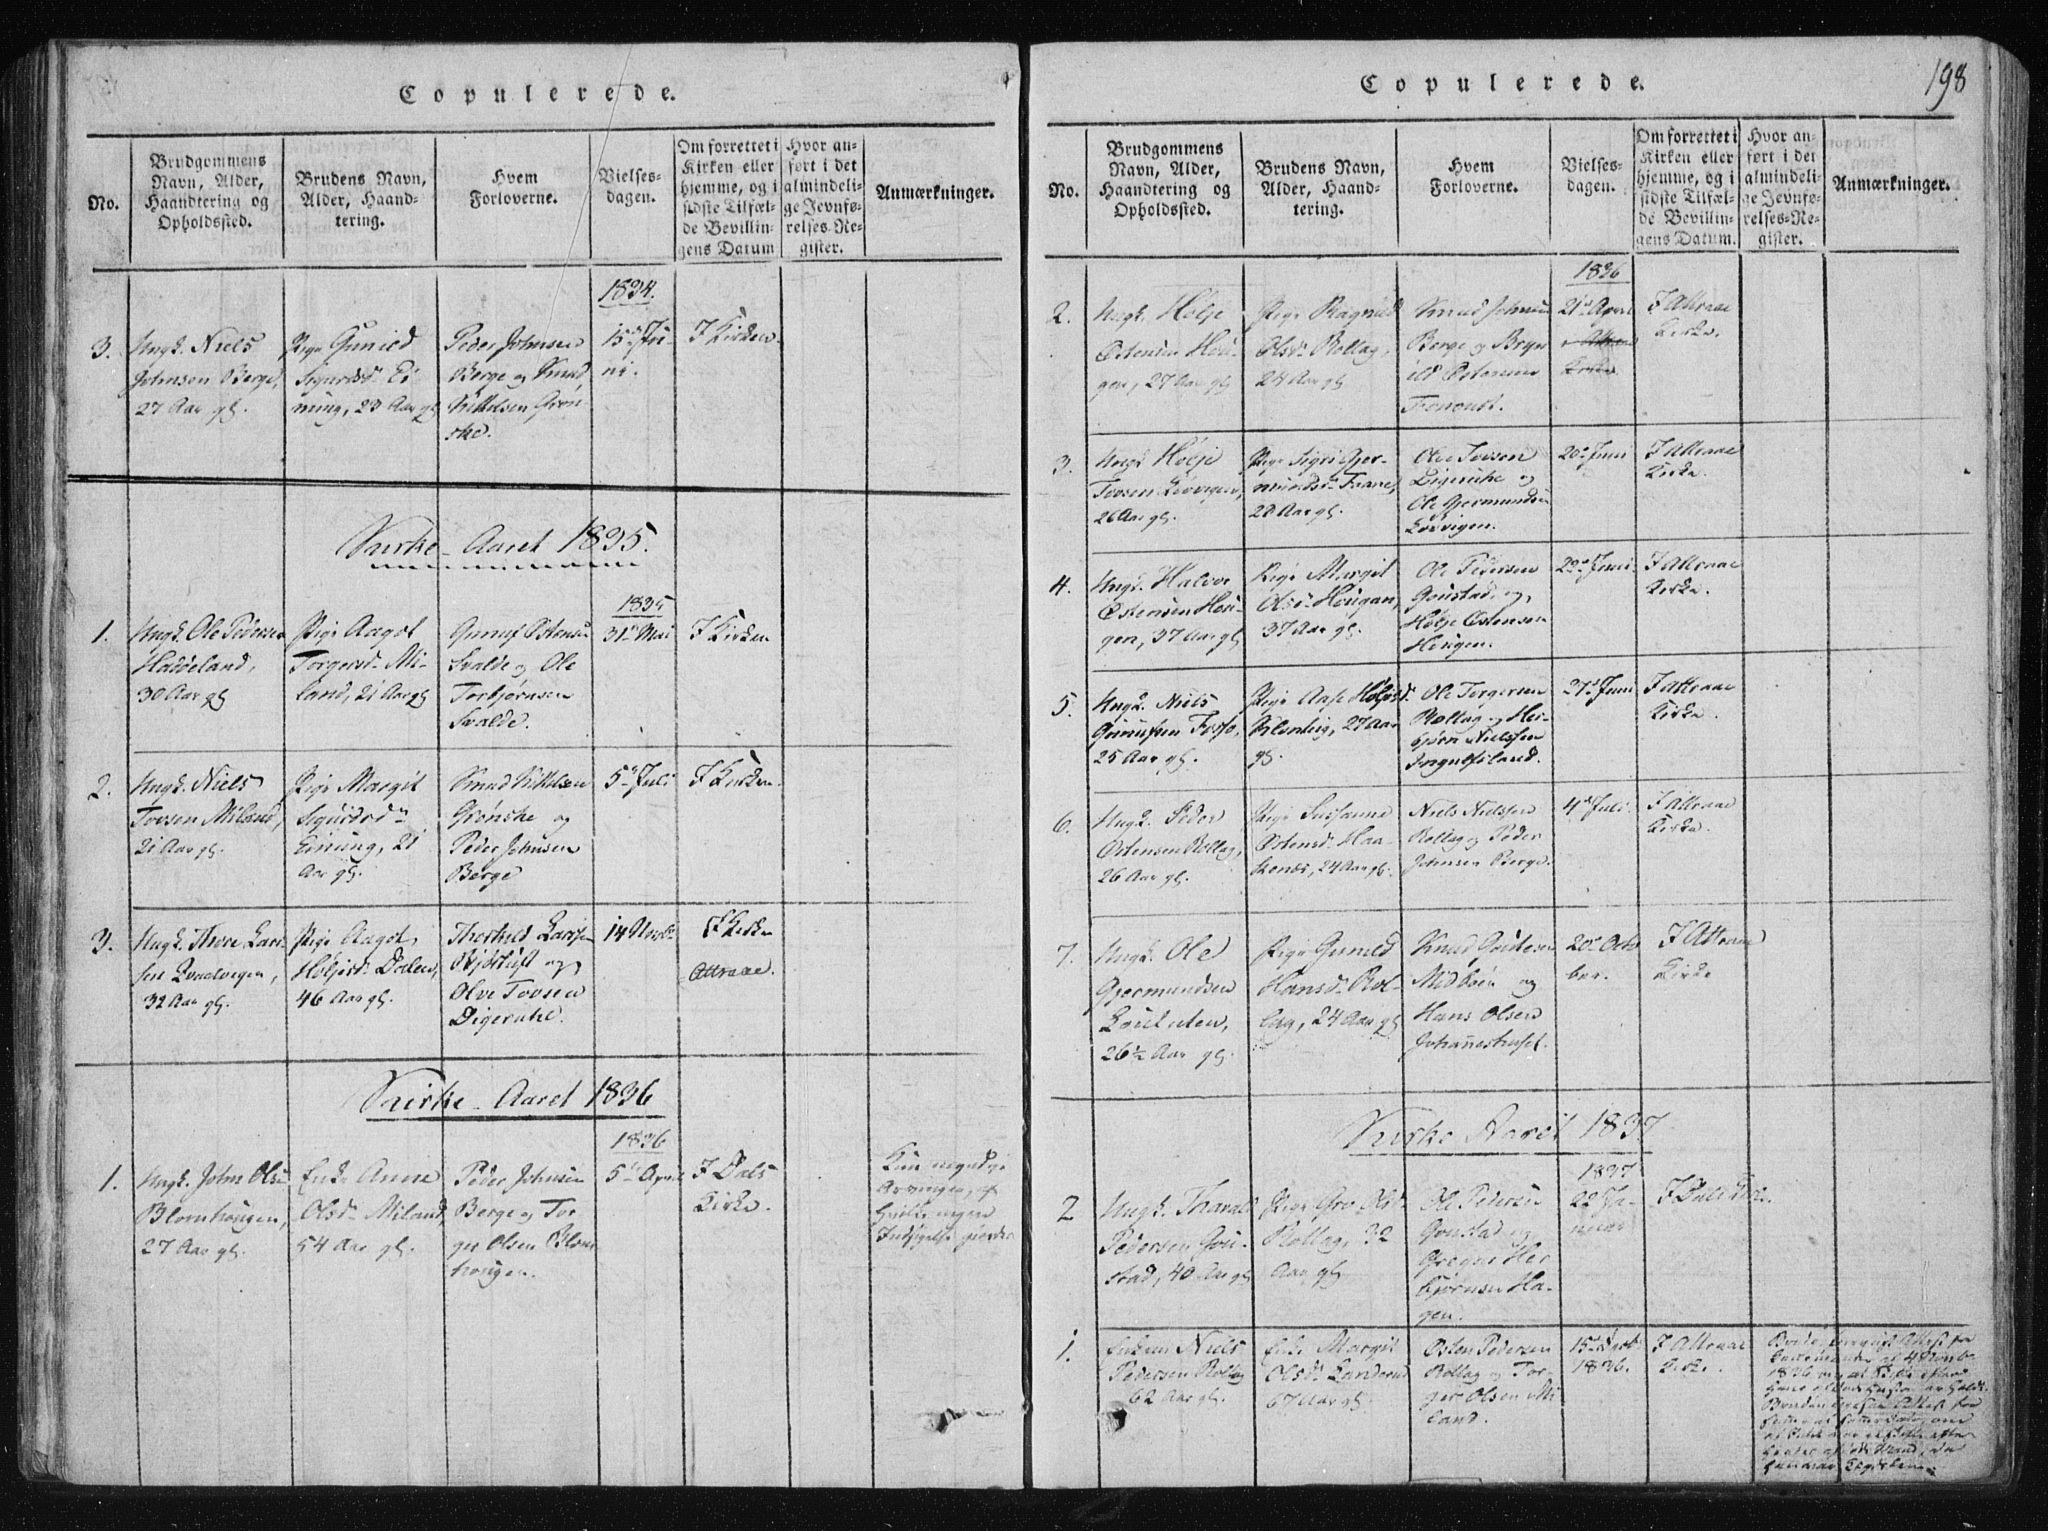 198
Copulerede.
No.
Brudgommens
Navn, Alder,
Haandtering og
Opholdssted.
Brudens Navn,
Alder, Haand-
tering.
Hvem
Forloverne.
Vielses-
dagen.
Om forrettet i
Kirken eller
hjemme, og i
sidste Tilfæl-
de Bevillin-
gens Datum
Hvor an-
ført i det
almindeli-
ge Jevnfø-
relses-Re-
gister.
Anmærkninger.
3.
Ungk. Niels
Johnsen Berge,
27 Aar gl.
Pige Gunild
Sigurdsd. Ei
nung, 23 Aar gl
Peder Johnsen
Berge og Knud
Kittelsen Grøn-
ske.
1834.
15de Ju-
ni.
I Kirken
Kirke-Aaret 1835.
1.
Ungk. Ole Pedersen
Haddeland,
30 Aar gl
Pige Aagot
Torgersd. Mi-
land, 21 Aar gl
Gunuf Østensen
Svalde og Ole
Torbjørnsen
Svalde.
1835
31te Mai
I Kirken
2.
Ungk. Niels
Tovsen Miland,
21 Aar gl.
Pige Margit
Sigurdsd.
Einung, 21
Aar gl.
Knud Kittelsen
Grønske og
Peder Johnsen
Berge
5te Juli
I Kirken
3.
Ungk. Thore Lar-
sen
32 Aar gl.
Pige Aagot
Høljesd. Dalen,
46 Aar gl.
Larsen
og
Olve Tovsen
Digerake.
14 Novbr
I Kirken
Attraae.
Kirke-Aaret 1836
1.
Ungk. John Olsen
Blomhougen,
27 Aar gl.
Enke Anne
Olsd. Miland
54 Aar gl.
Peder Johnsen
Berge og Tor-
ger Olsen Blom
hougen.
1836
5te April
I Dals
Kirke.
Kun myndige
Arvinger, af
hvilke ingen
Indsigelse gjordes
Copulerede.
No.
Brudgommens
Navn, Alder,
Haandtering og
Opholdssted.
Brudens Navn,
Alder, Haand-
tering.
Hvem
Forloverne.
Vielses-
dagen.
Om forrettet i
Kirken eller
hjemme, og i
sidste Tilfæl-
de Bevillin-
gens Datum.
Hvor an-
ført i det
almindeli-
ge Jevnfø-
relses-Re-
gister.
Anmærkninger.
2.
Ungk. Hølje
Østensen Hou-
gen, 27 Aar gl
Pige Ragnild
Olsd. Rollag,
24 Aar gl
Knud Johnsen
Berge og Bryn
ild Østensen
1836
21de April
Kirke
I Attraae
Kirke.
3.
Ungk Hølje
Tovsen Løvigen,
26 Aar gl.
Pige Sigri Gjer-
mundsd. Faane,
28 Aar gl.
Ole Tovsen
og
Ole Gjermundsen
Løvigen.
20de Juni
I Attraae
Kirke.
4.
Ungk. Halvor
Østensen Hou-
gen, 37 Aar gl
Pige Margit
Olsd. Hougan,
37 Aar gl.
Ole Pedersen
Goustad og
Hølje Østensen
Hougen.
23de Juni
I Attraae
Kirke.
5.
Ungk. Niels
Gunufsen Fosso,
25 Aar gl.
Pige Aase Høljesd.
27 Aar
gl.
Ole Torgersen
Rollag og Her-
bjørn Nielssen
Ingulfsland.
27de Juni
I Attraae
Kirke.
6.
Ungk. Peder
Østensen Rollag,
26 Aar gl.
Pige Susanne
Østensd. Haa-
kenæs, 24 Aar gl.
Niels Nielssen
Rollag og Peder
Johnsen Berge.
4de Juli.
I Attraae
Kirke.
7.
Ungk. Ole
Gjermundsen
26½ Aar gl.
Pige Gunild
Hansd. Rol-
lag, 24 Aar gl
Knud
Midbøen og
Hans Olsen
Johanneshuset.
20de Octo
ber.
I Attraae
Kirke
Kirke Aaret 1837
2
Ungk. Tharald
Pedersen Gou-
stad, 40 Aar gl
Pige Gro Olsd.
Rollag, 32
Aar gl.
Ole Pedersen
Goustad og
Gregar Her
bjørnsen Ha-
gen.
1837.
22 Ja-
nuar
I Dals Kirke.
1.
Enkem. Niels
Pedersen Rollag
62 Aar gl.
Enke Margit
Olsd.
67 Aar gl.
Østen Pedersen
Rollag og Tor-
ger Olsen Mi
land.
1836.
I Attraae
Kirke.